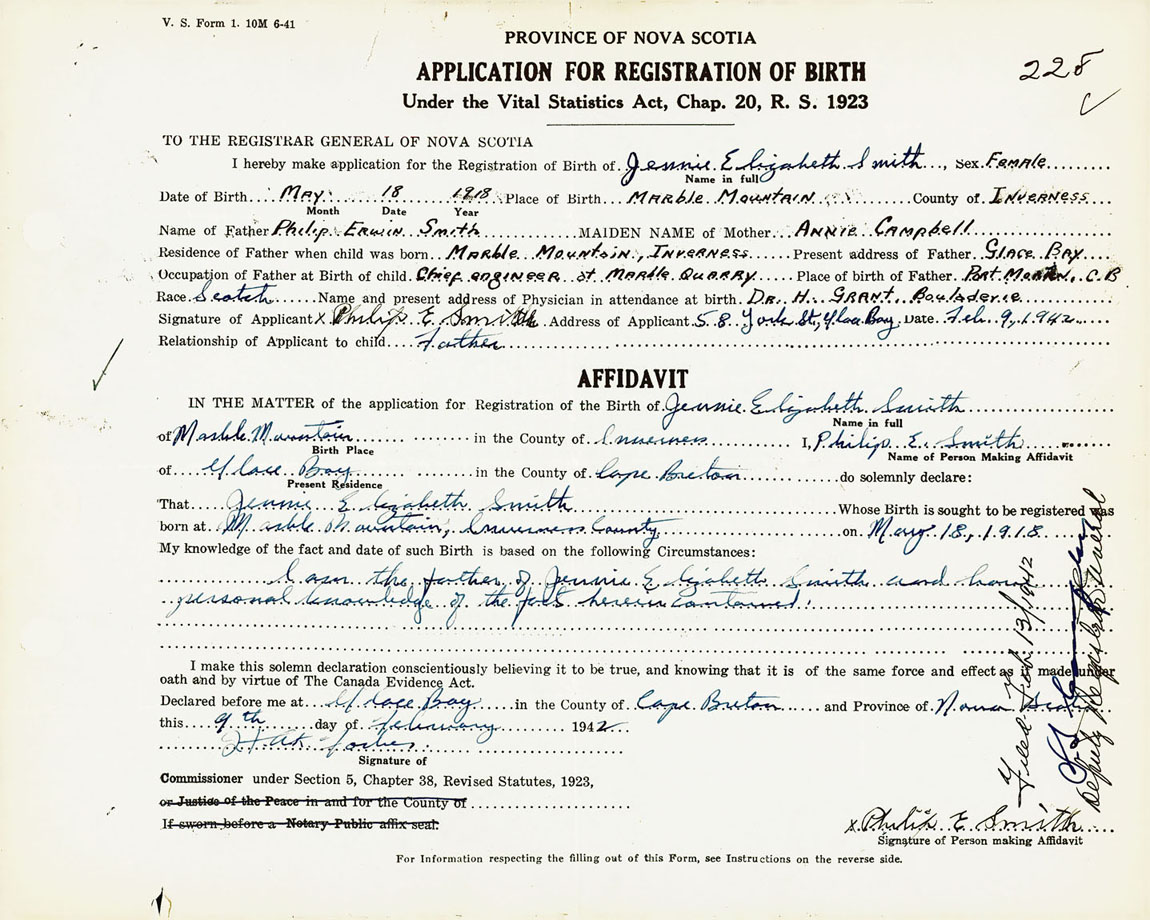 V. S. Form 1. 10M 6-41
PROVINCE OF NOVA SCOTIA
APPLICATION FOR REGISTRATION OF BIRTH
228
Under the Vital Statistics Act, Chap. 20, R. S. 1923
TO THE REGISTRAR GENERAL OF NOVA SCOTIA
I hereby make application for the Registration of Birth of Jennie Elizabeth Smith, Sex Female
Name in full
Date of Birth May 18 1918 Place of Birth Marble Mountain County of Inverness
Month Date Year
Name of Father Philip Erwin Smith MAIDEN NAME of Mother Annie Campbell
Residence of Father when child was born Marble Mountain, Inverness Present address of Father Glace Bay
Occupation of Father at Birth of child Chief engineer at Marble Quarry Place of birth of Father Port Morien, C.B
Race Scotch Name and present address of Physician in attendance at birth Dr. H. Grant, Bouladerie
Signature of Applicant x Philip E. Smith Address of Applicant 58 York St, Glace Bay, Date Feb. 9, 1942
Relationship of Applicant to child Father
AFFIDAVIT
IN THE MATTER of the application for Registration of the Birth of Jennie Elizabeth Smith
Name in full
of Marble Mountain in the County of Inverness I, Philip E. Smith
Birth Place Name of Person Making Affidavit
of Glace Bay in the County of Cape Breton do solemnly declare:
Present Residence
That Jennie Elizabeth Smith Whose Birth is sought to be registered was
born at Marble Mountain, Inverness County, on May 18, 1918
My knowledge of the fact and date of such Birth is based on the following Circumstances:
I am the father of Jennie Elizabeth Smith and have
personal knowledge of the facts herein contained.
I make this solemn declaration conscientiously believing it to be true, and knowing that it is of the same force and effect as if made under
oath and by virtue of The Canada Evidence Act.
Declared before me at Glace Bay in the County of Cape Breton and Province of Nova Scotia
this 9th day of February 1942
Forbes
Signature of
Commissioner under Section 5, Chapter 38, Revised Statutes, 1923,
or Justice of the Peace in and for the County of
If sworn before a Notary Public affix seal.
x Philip E Smith
Signature of Person making Affidavit
For Information respecting the filling out of this Form, see Instructions on the reverse side.
Filed Feb. 13/1942
Deputy Registrar General